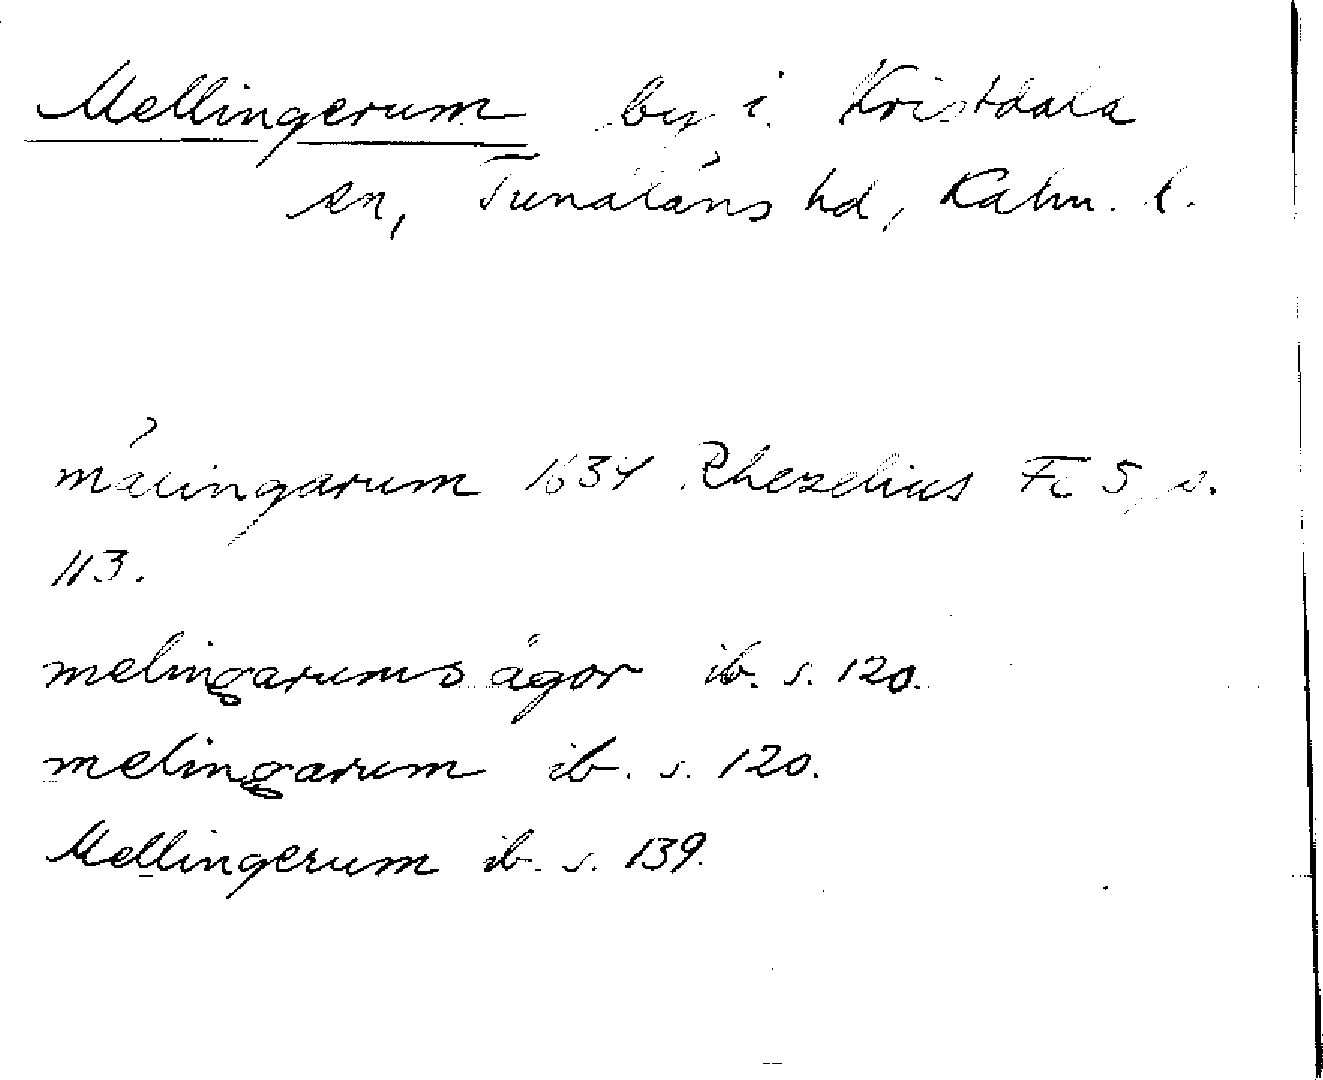 Mellingerum by i Kristdala
sn, Tunaläns hd, Kalm. l.
mälingarum 1634 Rhezelius Fc 5, s.
113.
melingarums ägor ib. s. 120.
melingarum ib. s. 120.
Mellingerum ib. s. 139.